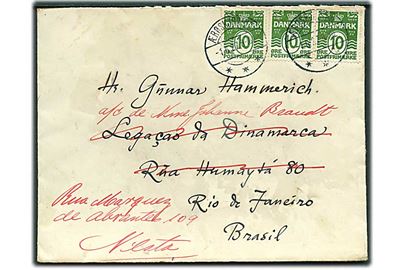 DANMARK DANMARK DANMARK
10 10 10
ØRE ØRE ØRE
POSTFRIMÆRKE POSTFRIMÆRKE POSTFRIMÆRKE
Hr. Gunnar Hammerich.
a/c de Mme Johanne Brandt
Legaçao da Dinamarca
Rûa Humaytá 80
Rua Marquez
de Abrantes 109
Rio de Janeiro
N'esta
Brasil